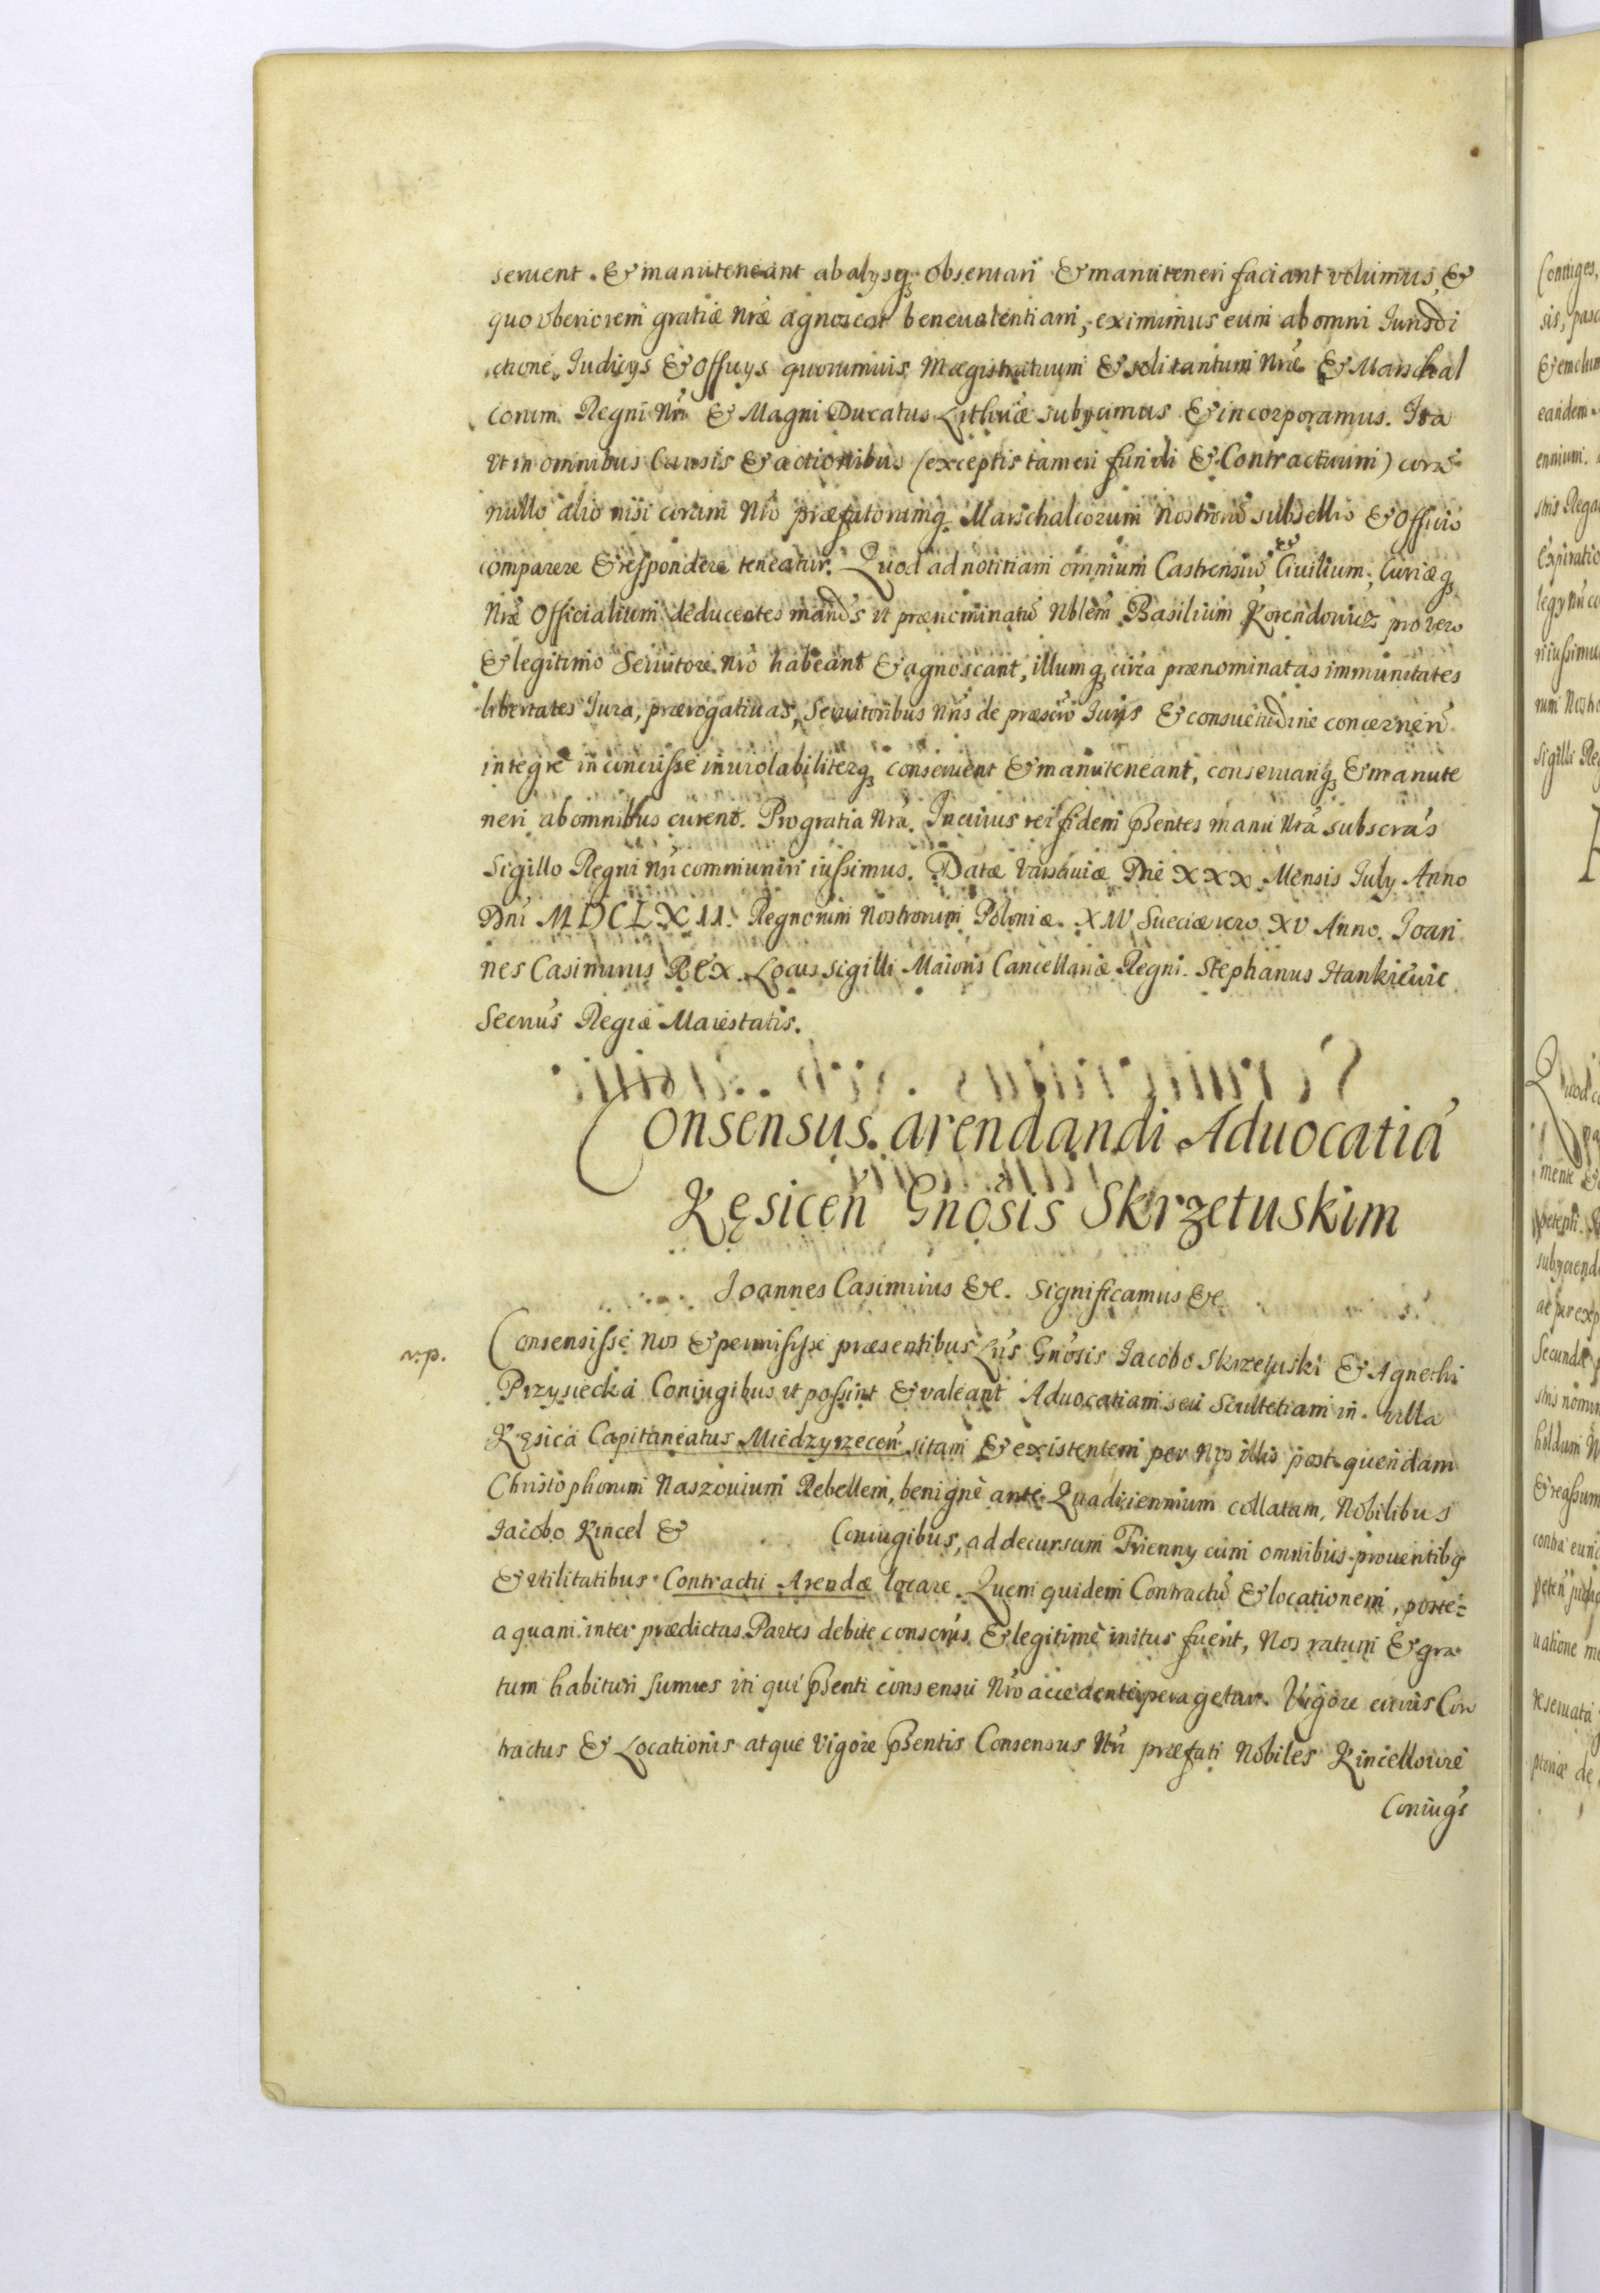 seruent. & manuteneant ab alysq. obseruari & manuteneri faciant volumus, &
quo vberiorem gratiæ nræ agnoscat beneuolentiam, eximimus eum ab omni Jurisdi
ctione, Judicys & Officys quorumuis Magistratuum & solitantum Nræ & Marschal
corum Regni Nri & Magni Ducatus Lithuæ subycimus & incorporamus. Ita
vt in omnibus Causis & actionibus (exceptis tamen fundi & Contractuum) corã
nullo alio nisi coram Nrô præfatorumq. Marschalcorum nostrorũ subsellio & Officio
comparere & respondere teneatur. Quod ad notitiam omnium Castrensiũ & Ciuilium, Curiæq.
Nræ Officialium deducentes mands vt prænominatũ Nblem Basilium Korendouicz pro vero
& legitimo Seruitore Nrô habeant & agnoscant, illumq. circa prænominatas immunitates
libertates Jura, prærogatiuas, Seruitoribus Nris de præscrô Juris & consuetudine concernen
integrè inconcusse inuiolabiliterq. conseruent & manuteneant, conseruariq. & manute
neri ab omnibus curent. Pro gratia Nra. In cuius rei fidem pñtes manu Nrã subscrãs
Sigillo Regni Nri communiri iussimus. Datæ Varsauiæ Die XXX Mensis July Anno
Dni MDCLXII. Regnorum Nostrorum Poloniæ XIV Sueciæ vero XV Anno. Joan
nes Casimirus REX. Locus sigilli Maioris Cancellariæ Regni. Stephanus Hankieuic
Secrius Regiæ Maiestatis.
Consensus arendandi Aduocatiã
Kęsicen Gnosis Skrzetuskim
Joannes Casimirus &c. Significamus &c
Consensisse Nos & permisisse præsentibus Lris Gnosis Jacobo Skrzetuski & Agnethi
Przysiecka Coniugibus vt possint & valeant Aduocatiam seu Scultetiam in villa
Kęsica Capitaneatus Miedzyrzecen sitam & existentem per Nos illis post quendam
Christophorum Naszouium Rebellem, benignè ante Quadriennium collatam, Nobilibus
Jacobo Kincel & Coniugibus, ad decursum Trienny cum omnibus prouentibq
& vtilitatibus Contractu Arendæ locare. Quem quidem Contractũ & locationem, poste=
a quam inter prædictas Partes debite conscrũs & legitimè initus fuerit, Nos ratum & gra
tum habituri sumus iti qui pñti consensu Nrô accedente peragetur. Vigore cuius Con
tractus & Locationis atque Vigore pñtis Consensus Nri præfati Nobiles Kincellowie
Coniugs